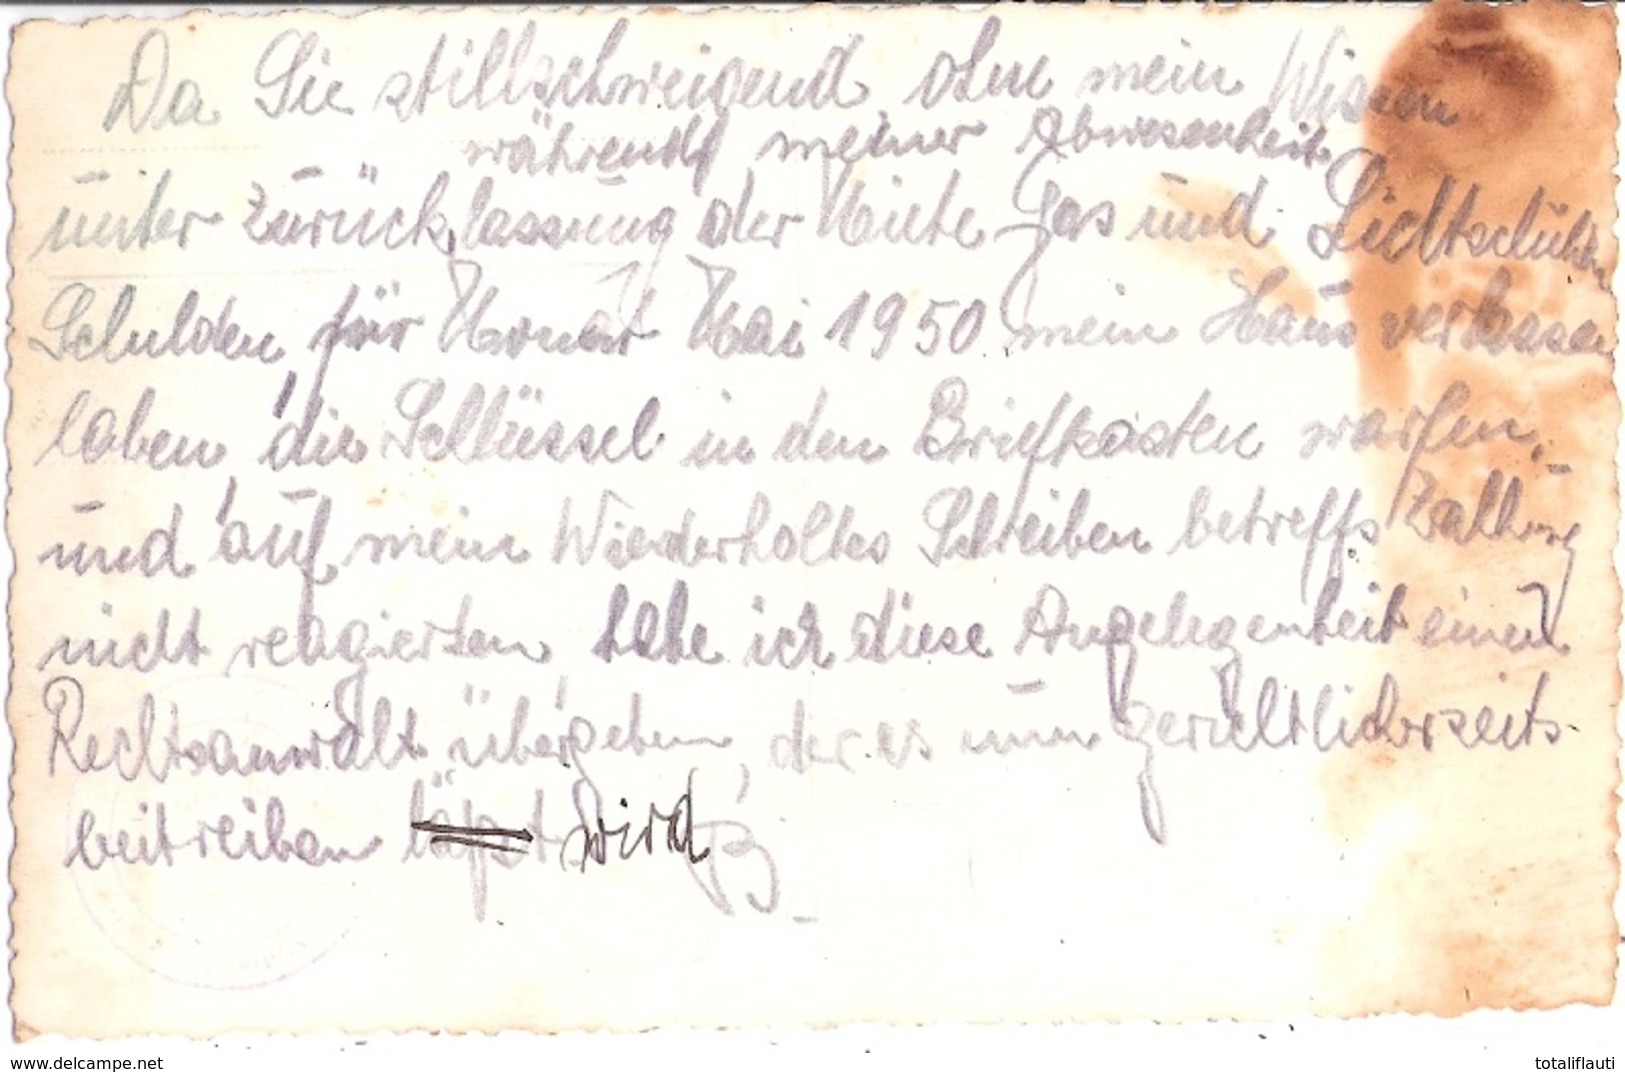 Da Sie stillschweigend ohne mein Wissen
während meiner Abwesenheit
unter Zurücklassung der Miete Gas und Lichtschulden
Schulden für Monat Mai 1950 mein Haus verlassen
haben, die Schlüssel in den Briefkasten warfen,
und auf mein Wiederholtes Schreiben betreffs Zahlung
nicht reagierten habe ich diese Angelegenheit einem
Rechtsanwalt übergeben, der es nun gerichtlicherseits
beitreiben läßt wird
www.delcampe.net
totaliflauti